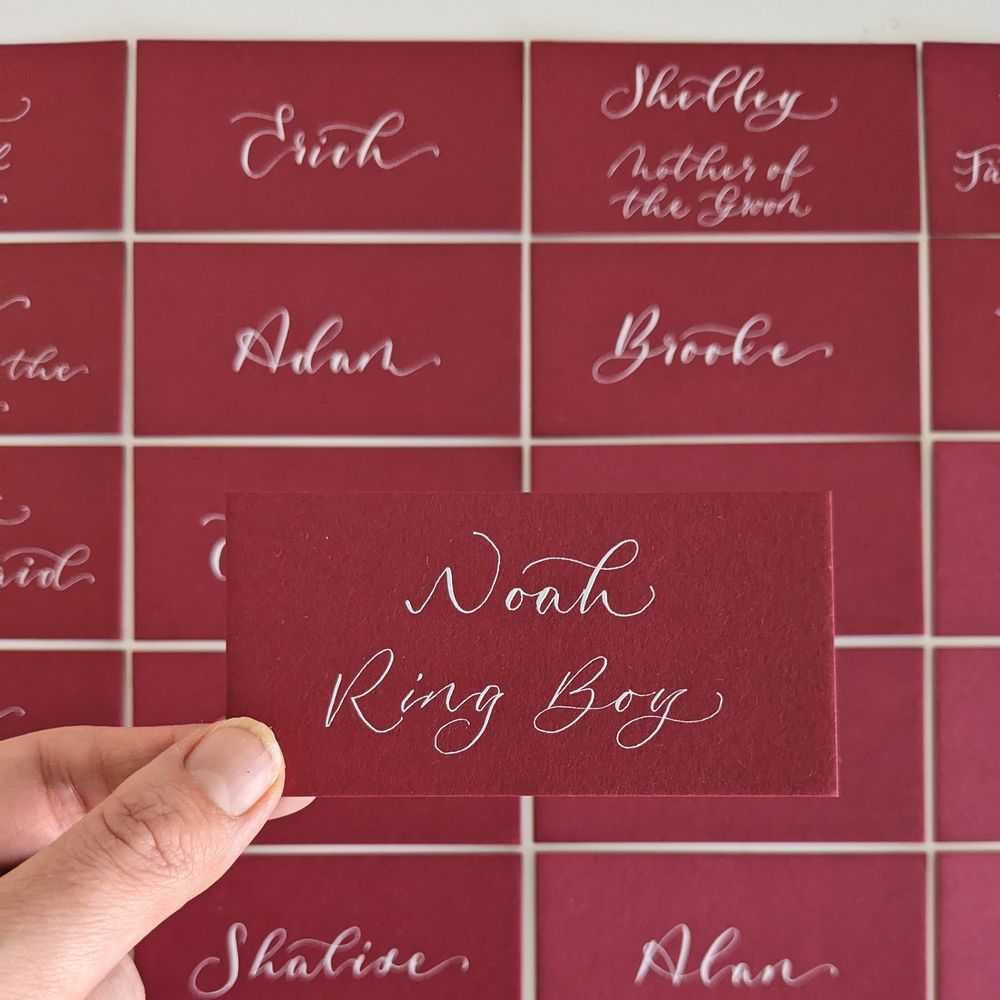 Erich
Shelley
Mother of
the Groom
Adam
Brooke
the
Noah
Ring Boy
Shalise
Alan